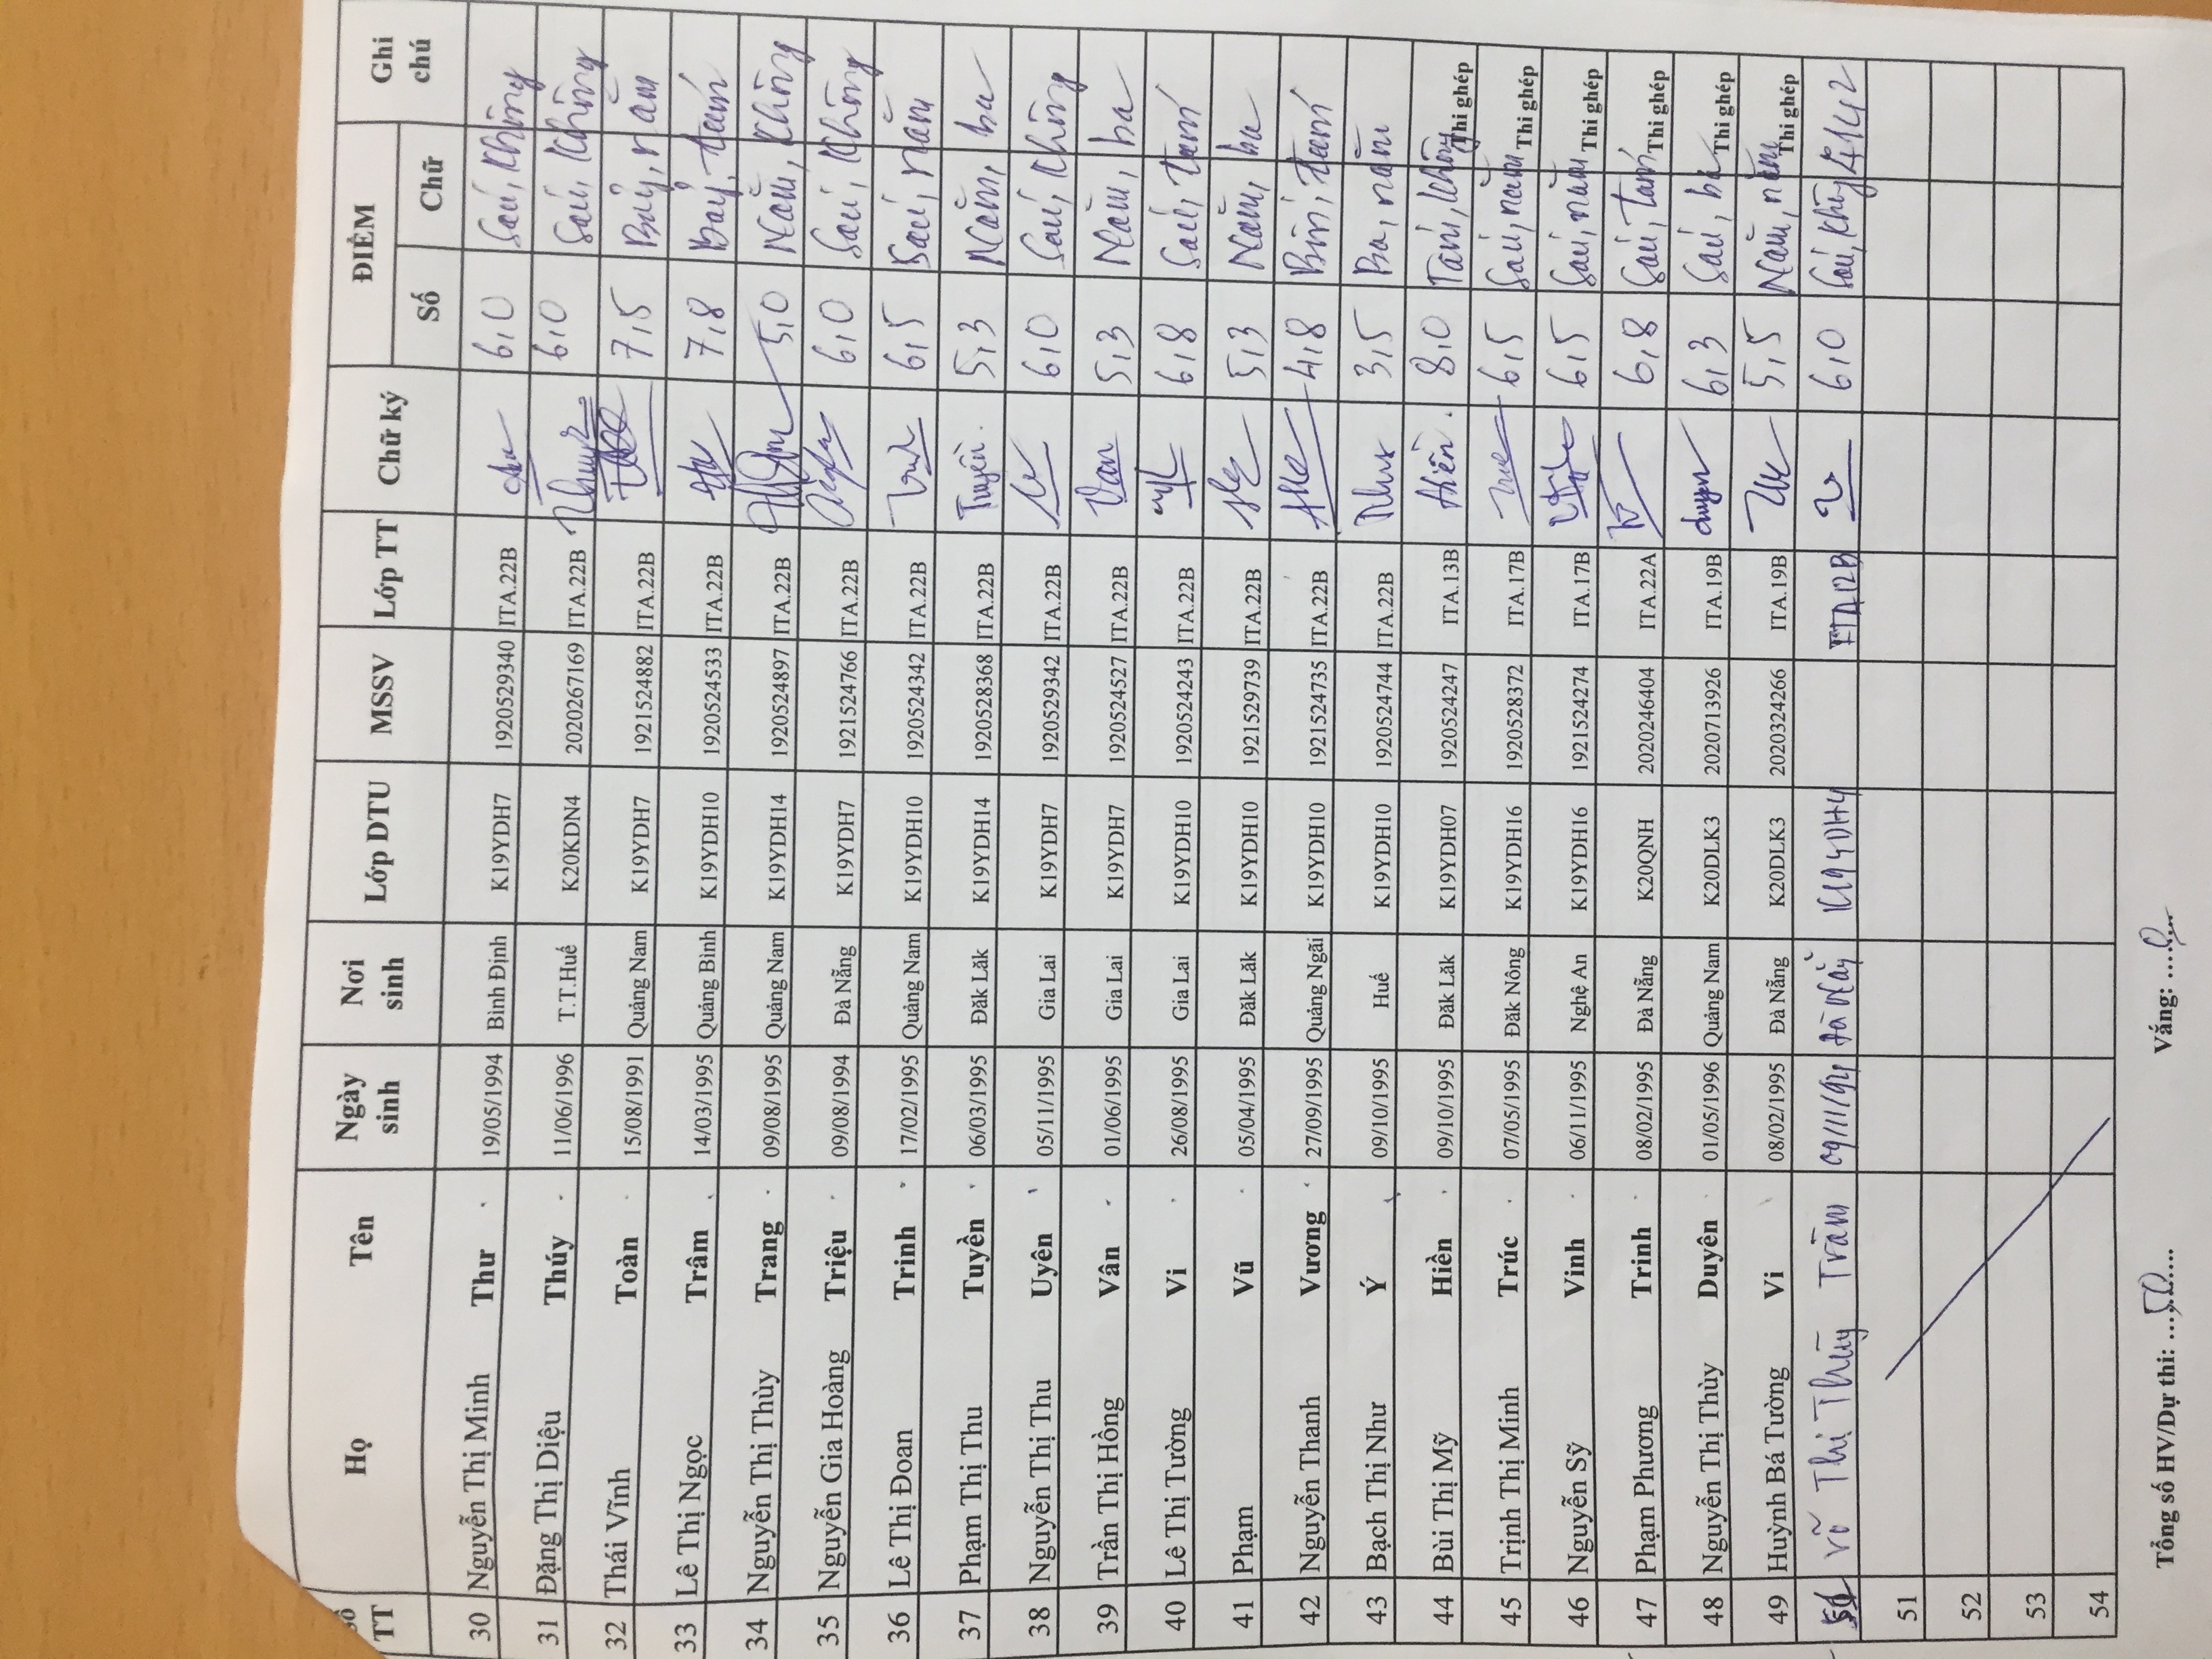 TT Họ Tên Ngày sinh Nơi sinh Lớp DTU MSSV Lớp TT Chữ ký ĐIỂM Số Chữ Ghi chú
30 Nguyễn Thị Minh Thư 19/05/1994 Bình Định K19YDH7 1920529340 ITA.22B 6,0 Sáu, Không
31 Đặng Thị Diệu Thúy 11/06/1996 T.T.Huế K20KDN4 2020267169 ITA.22B 6,0 Sáu, Không
32 Thái Vĩnh Toàn 15/08/1991 Quảng Nam K19YDH7 1921524882 ITA.22B 7,5 Bảy, năm
33 Lê Thị Ngọc Trâm 14/03/1995 Quảng Bình K19YDH10 1920524533 ITA.22B 7,8 Bảy, tám
34 Nguyễn Thị Thùy Trang 09/08/1995 Quảng Nam K19YDH14 1920524897 ITA.22B 5,0 Năm, Không
35 Nguyễn Gia Hoàng Triệu 09/08/1994 Đà Nẵng K19YDH7 1921524766 ITA.22B 6,0 Sáu, Không
36 Lê Thị Đoan Trinh 17/02/1995 Quảng Nam K19YDH10 1920524342 ITA.22B 6,5 Sáu, năm
37 Phạm Thị Thu Tuyền 06/03/1995 Đăk Lăk K19YDH14 1920528368 ITA.22B Tuyền. 5,3 Năm, ba
38 Nguyễn Thị Thu Uyên 05/11/1995 Gia Lai K19YDH7 1920529342 ITA.22B 6,0 Sáu, Không
39 Trần Thị Hồng Vân 01/06/1995 Gia Lai K19YDH7 1920524527 ITA.22B Van 5,3 Năm, ba
40 Lê Thị Tường Vi 26/08/1995 Gia Lai K19YDH10 1920524243 ITA.22B 6,8 Sáu, tám
41 Phạm Vũ 05/04/1995 Đăk Lăk K19YDH10 1921529739 ITA.22B 5,3 Năm, ba
42 Nguyễn Thanh Vương 27/09/1995 Quảng Ngãi K19YDH10 1921524735 ITA.22B 4,8 Bốn, tám
43 Bạch Thị Như Ý 09/10/1995 Huế K19YDH10 1920524744 ITA.22B Như 3,5 Ba, năm
44 Bùi Thị Mỹ Hiền 09/10/1995 Đăk Lăk K19YDH07 1920524247 ITA.13B Hiền. 8,0 Tám, Không Thi ghép
45 Trịnh Thị Minh Trúc 07/05/1995 Đăk Nông K19YDH16 1920528372 ITA.17B 6,5 Sáu, năm Thi ghép
46 Nguyễn Sỹ Vinh 06/11/1995 Nghệ An K19YDH16 1921524274 ITA.17B 6,5 Sáu, năm Thi ghép
47 Phạm Phương Trinh 08/02/1995 Đà Nẵng K20QNH 2020246404 ITA.22A 6,8 Sáu, tám Thi ghép
48 Nguyễn Thị Thùy Duyên 01/05/1996 Quảng Nam K20DLK3 2020713926 ITA.19B duyên 6,3 Sáu, ba Thi ghép
49 Huỳnh Bá Tường Vi 08/02/1995 Đà Nẵng K20DLK3 2020324266 ITA.19B 5,5 Năm, năm Thi ghép
50 Võ Thị Thùy Trâm 09/11/94 Đà Nẵng K19YDH4 ITA12B 6,0 Sáu, Không
51
52
53
54
Tổng số HV/Dự thi: ...50... Vắng: ...0...